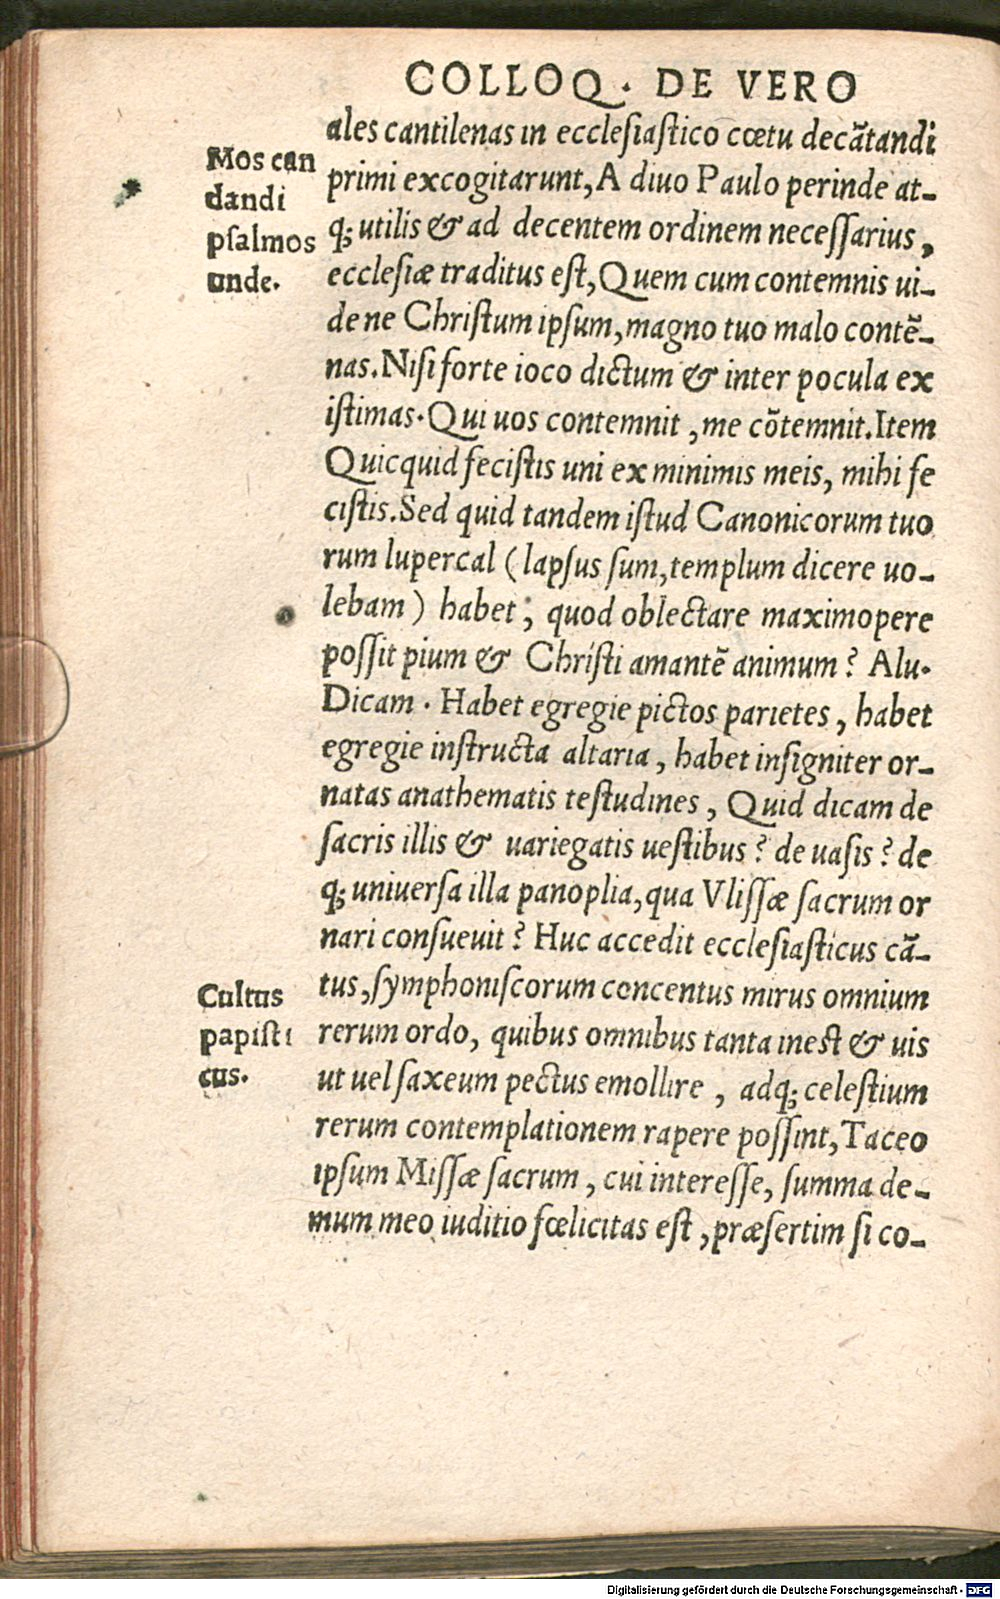 COLLOQ. DE VERO
ales cantilenas in ecclesiastico cœtu decãtandi
primi excogitarunt, A diuo Paulo perinde at-
q; utilis & ad decentem ordinem necessarius,
ecclesiæ traditus est, Quem cum contemnis ui-
de ne Christum ipsum, magno tuo malo contẽ-
nas. Nisi forte ioco dictum & inter pocula ex
istimas. Qui uos contemnit, me cõtemnit. Item
Quicquid fecistis uni ex minimis meis, mihi fe
cistis. Sed quid tandem istud Canonicorum tuo
rum lupercal (lapsus sum, templum dicere uo-
lebam) habet; quod oblectare maximopere
possit pium & Christi amantẽ animum? Alu.
Dicam. Habet egregie pictos parietes, habet
egregie instructa altaria, habet insigniter or-
natas anathematis testudines, Quid dicam de
sacris illis & uariegatis uestibus? de uasis? de
q; uniuersa illa panoplia, qua Vlissæ sacrum or
nari consueuit? Huc accedit ecclesiasticus cã-
tus, symphoniscorum concentus mirus omnium
rerum ordo, quibus omnibus tanta inest & uis
ut uel saxeum pectus emollire, adq; celestium
rerum contemplationem rapere possint, Taceo
ipsum Missæ sacrum, cui interesse, summa de-
mum meo iuditio fœlicitas est, præsertim si co-
Mos can
dandi
psalmos
unde.
Cultus
papisti
cus.
Digitalisierung gefördert durch die Deutsche Forschungsgemeinschaft - DFG